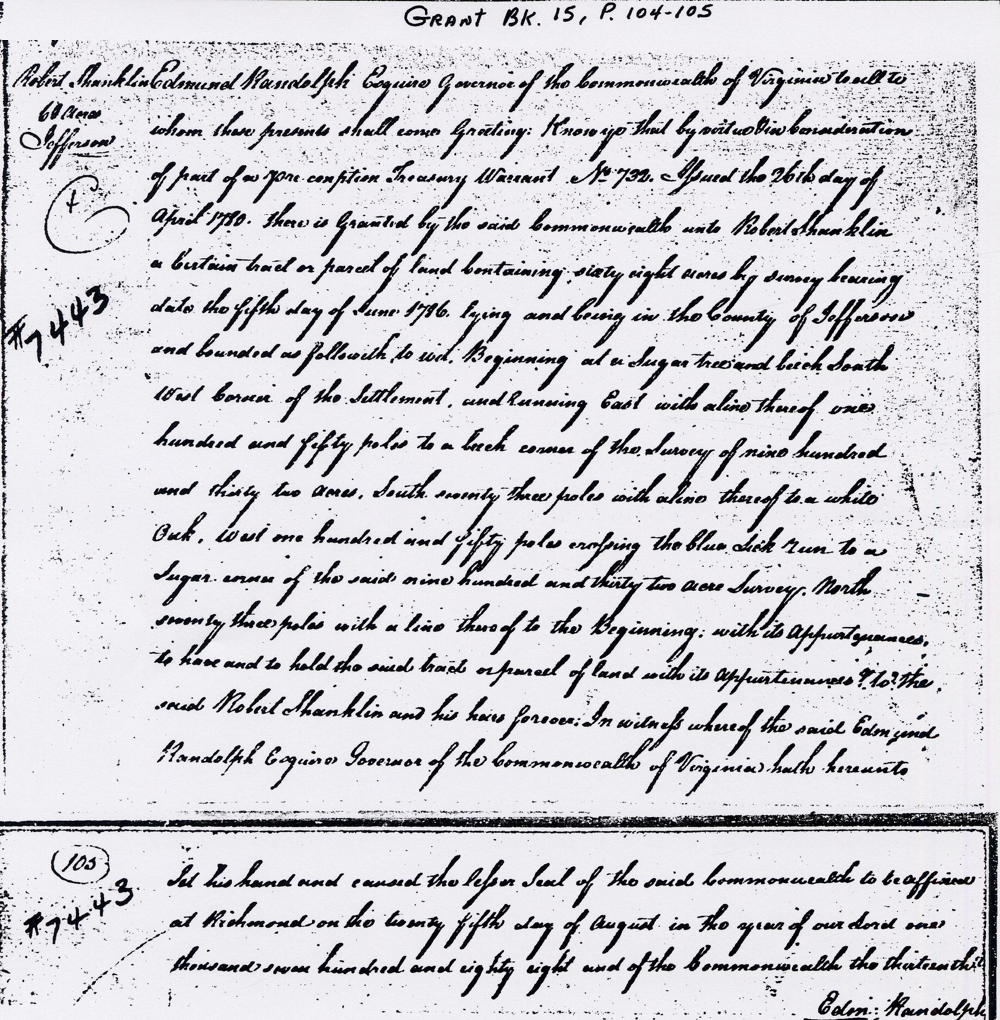 GRANT BK. 15, P. 104-105
Robert Shanklin
68 Acres
Jefferson
#7443
Edmund Randolph Esquire Governor of the Commonwealth of Virginia to all to
whom these presents shall come Greeting: Know ye that by virtue & in Consideration
of part of a Pre-emption Treasury Warrant No 732. Issued the 26th day of
April 1780. there is Granted by the said Commonwealth unto Robert Shanklin
a Certain tract or parcel of land Containing sixty eight acres by survey bearing
date the fifth day of June 1786. lying and being in the County of Jefferson
and bounded as followeth, to wit. Beginning at a Sugar tree and beech South
West Corner of the Settlement, and Running East with a line thereof one
hundred and fifty poles to a beech corner of the Survey of nine hundred
and thirty two acres, South seventy three poles with a line thereof to a white
Oak, West one hundred and fifty poles crossing the blue Lick run to a
Sugar corner of the said nine hundred and thirty two acre Survey, North
seventy three poles with a line thereof to the Beginning: with its Appurtenances,
to have and to hold the said tract or parcel of land with its Appurtenances to the
said Robert Shanklin and his heirs forever: In witness whereof the said Edmund
Randolph Esquire Governor of the Commonwealth of Virginia hath hereunto
105
#7443
Set his hand and caused the lesser Seal of the said Commonwealth to be affixed
at Richmond on the twenty fifth day of August in the year of our Lord one
thousand seven hundred and eighty eight and of the Commonwealth the thirteenth
Edm: Randolph